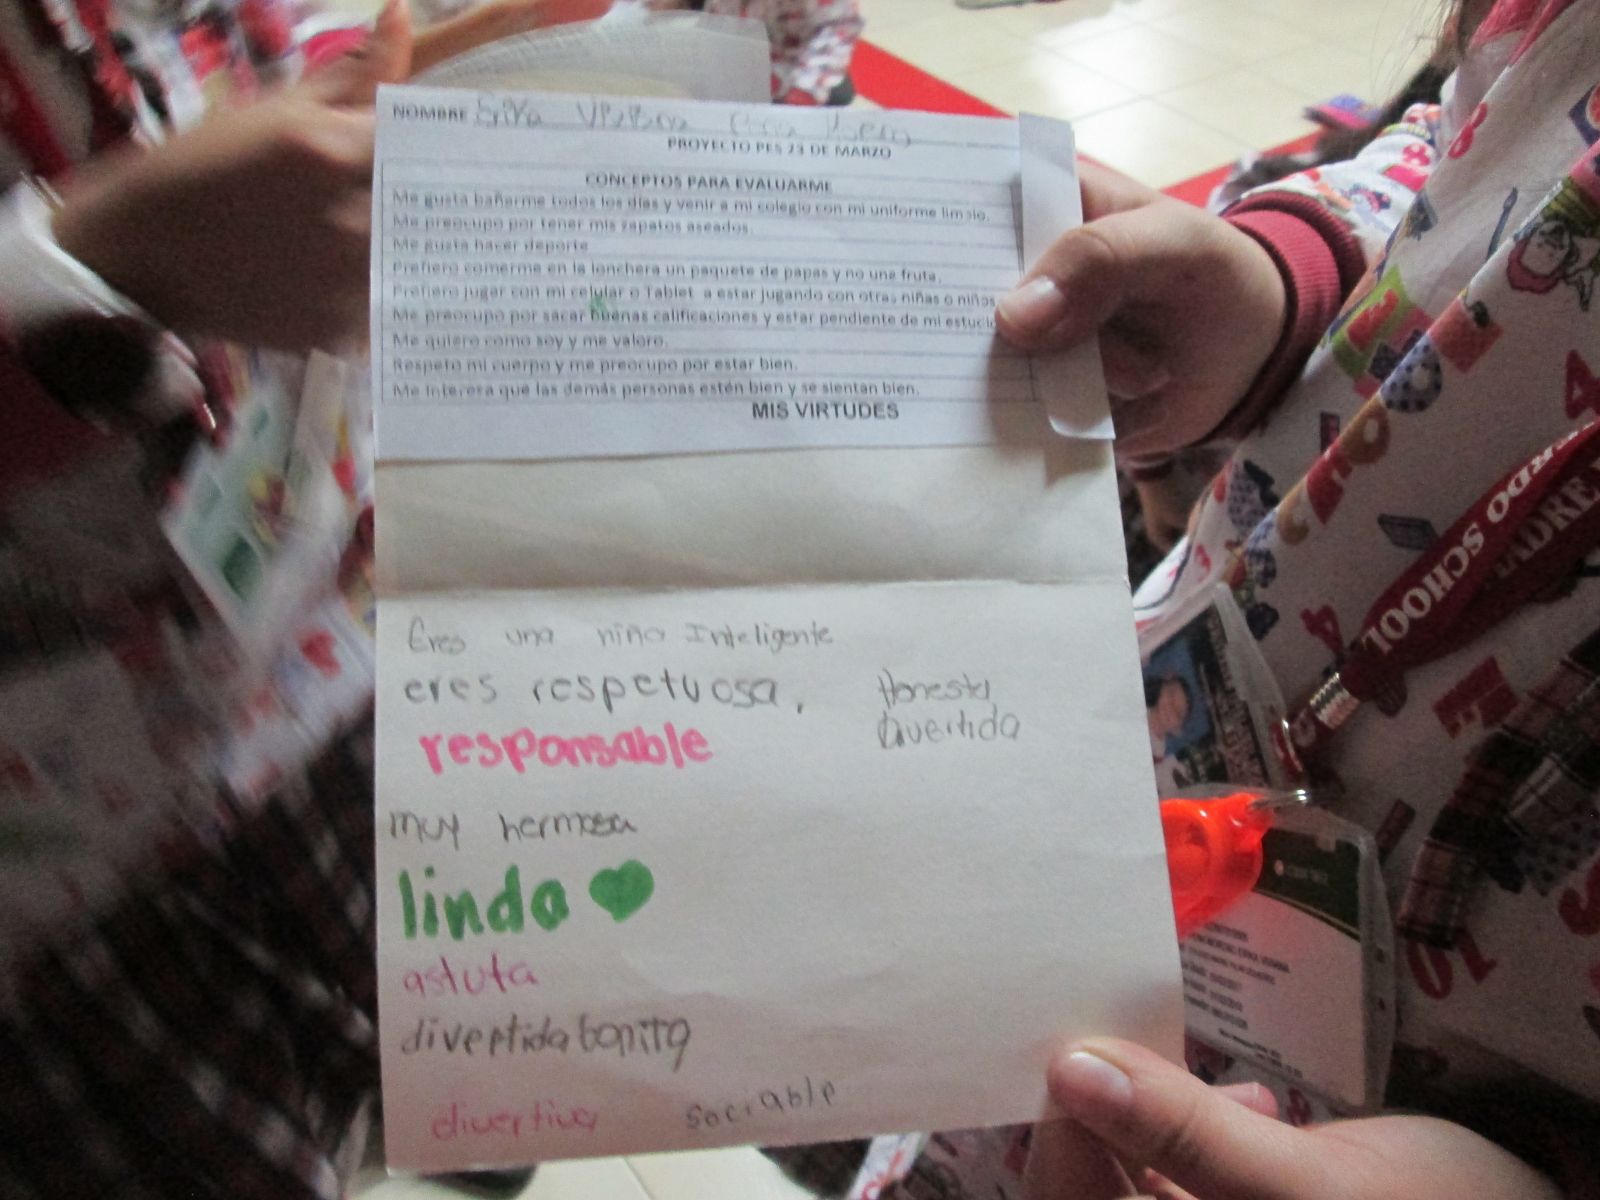 NOMBRE
PROYECTO PES 23 DE MARZO
CONCEPTOS PARA EVALUARME
Me gusta bañarme todos los días y venir a mi colegio con mi uniforme limpio.
Me preocupo por tener mis zapatos aseados.
Me gusta hacer deporte
Prefiero comerme en la lonchera un paquete de papas y no una fruta.
Prefiero jugar con mi celular o Tablet a estar jugando con otras niñas o niños
Me preocupo por sacar buenas calificaciones y estar pendiente de mi estudio
Me quiero como soy y me valoro.
Respeto mi cuerpo y me preocupo por estar bien.
Me interesa que las demás personas estén bien y se sientan bien.
MIS VIRTUDES
Eres una niña Inteligente
eres respetuosa,
Honesta
Divertida
responsable
muy hermosa
linda
astuta
divertida bonita
divertiva
sociable
SCHOOL